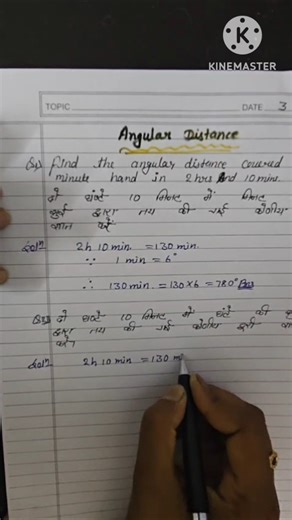 K
KINEMASTER
TOPIC
DATE 3
Angular Distance
Q1) Find the angular distance covered
minute hand in 2 hrs and 10 mins.
दो घंटे 10 मिनट में मिनट
सुई द्वारा तय की गई कोणीय
ज्ञात करें
Sol:
2h 10 min. = 130 min.
∵ 1 min = 6°
∴ 130 min. = 130 × 6 = 780° Ans
दो घंटे 10 मिनट में घंटे की
द्वारा तय की गई कोणीय दूरी ज्ञात
करें
Sol:
2h 10 min = 130 m